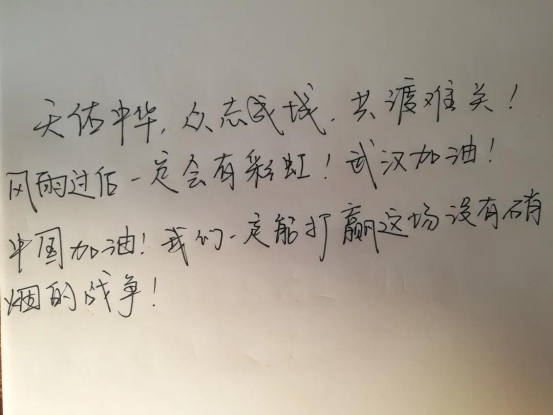 天佑中华,众志成城,共渡难关!
风雨过后一定会有彩虹!武汉加油!
中国加油!我们一定能打赢这场没有硝
烟的战争!